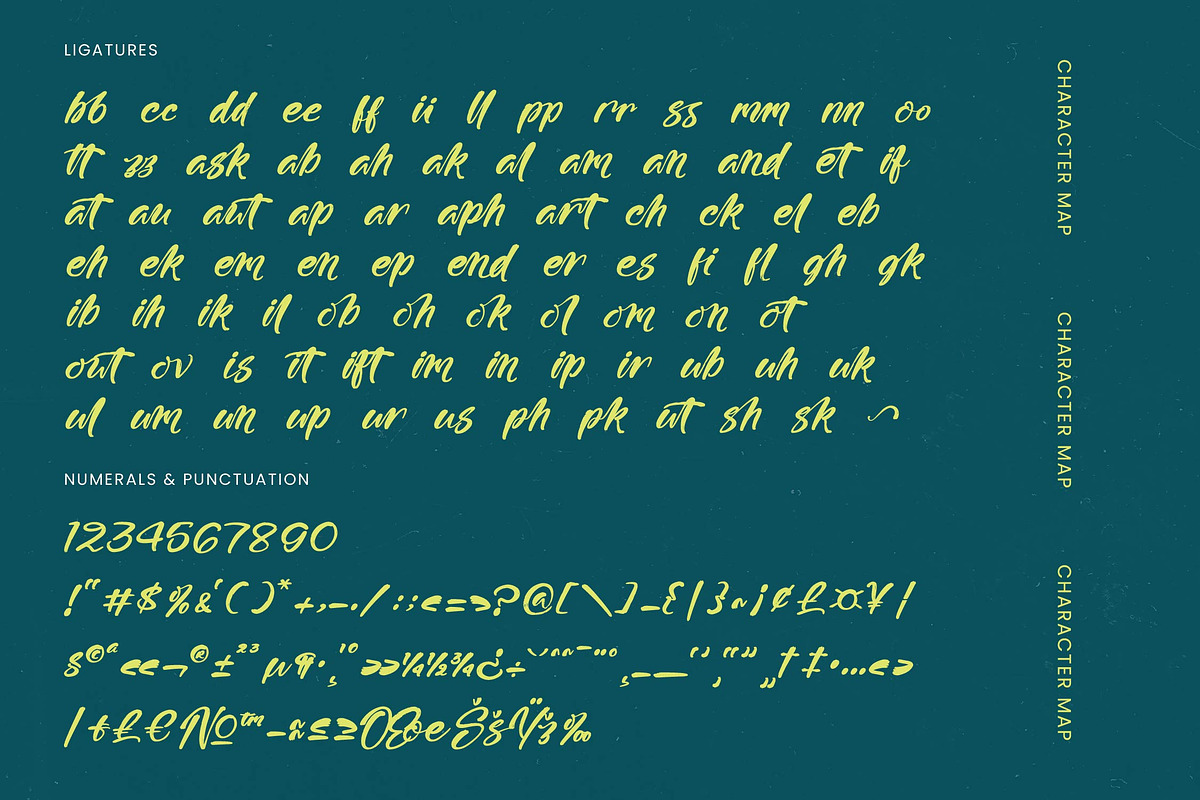 LIGATURES
bb cc dd ee ff ii ll pp rr ss mm nn oo
tt zz ask ab ah ak al am an and et if
at au aut ap ar aph art ch ck el eb
eh ek em en ep end er es fi fl gh gk
ib ih ik il ob oh ok ol om on ot
out ov is it ift im in ip ir ub uh uk
ul um un up ur us ph pk ut sh sk
NUMERALS & PUNCTUATION
1234567890
!"#$%&'()*+,-./:;<=>?@[\]_{|}~¡¢£¤¥¦
§©ª«¬®±²³µ¶·¸¹º»¼½¾¿÷
|ŧ£€№™−≈≤≥ŒœŠšŸž‰
CHARACTER MAP
CHARACTER MAP
CHARACTER MAP